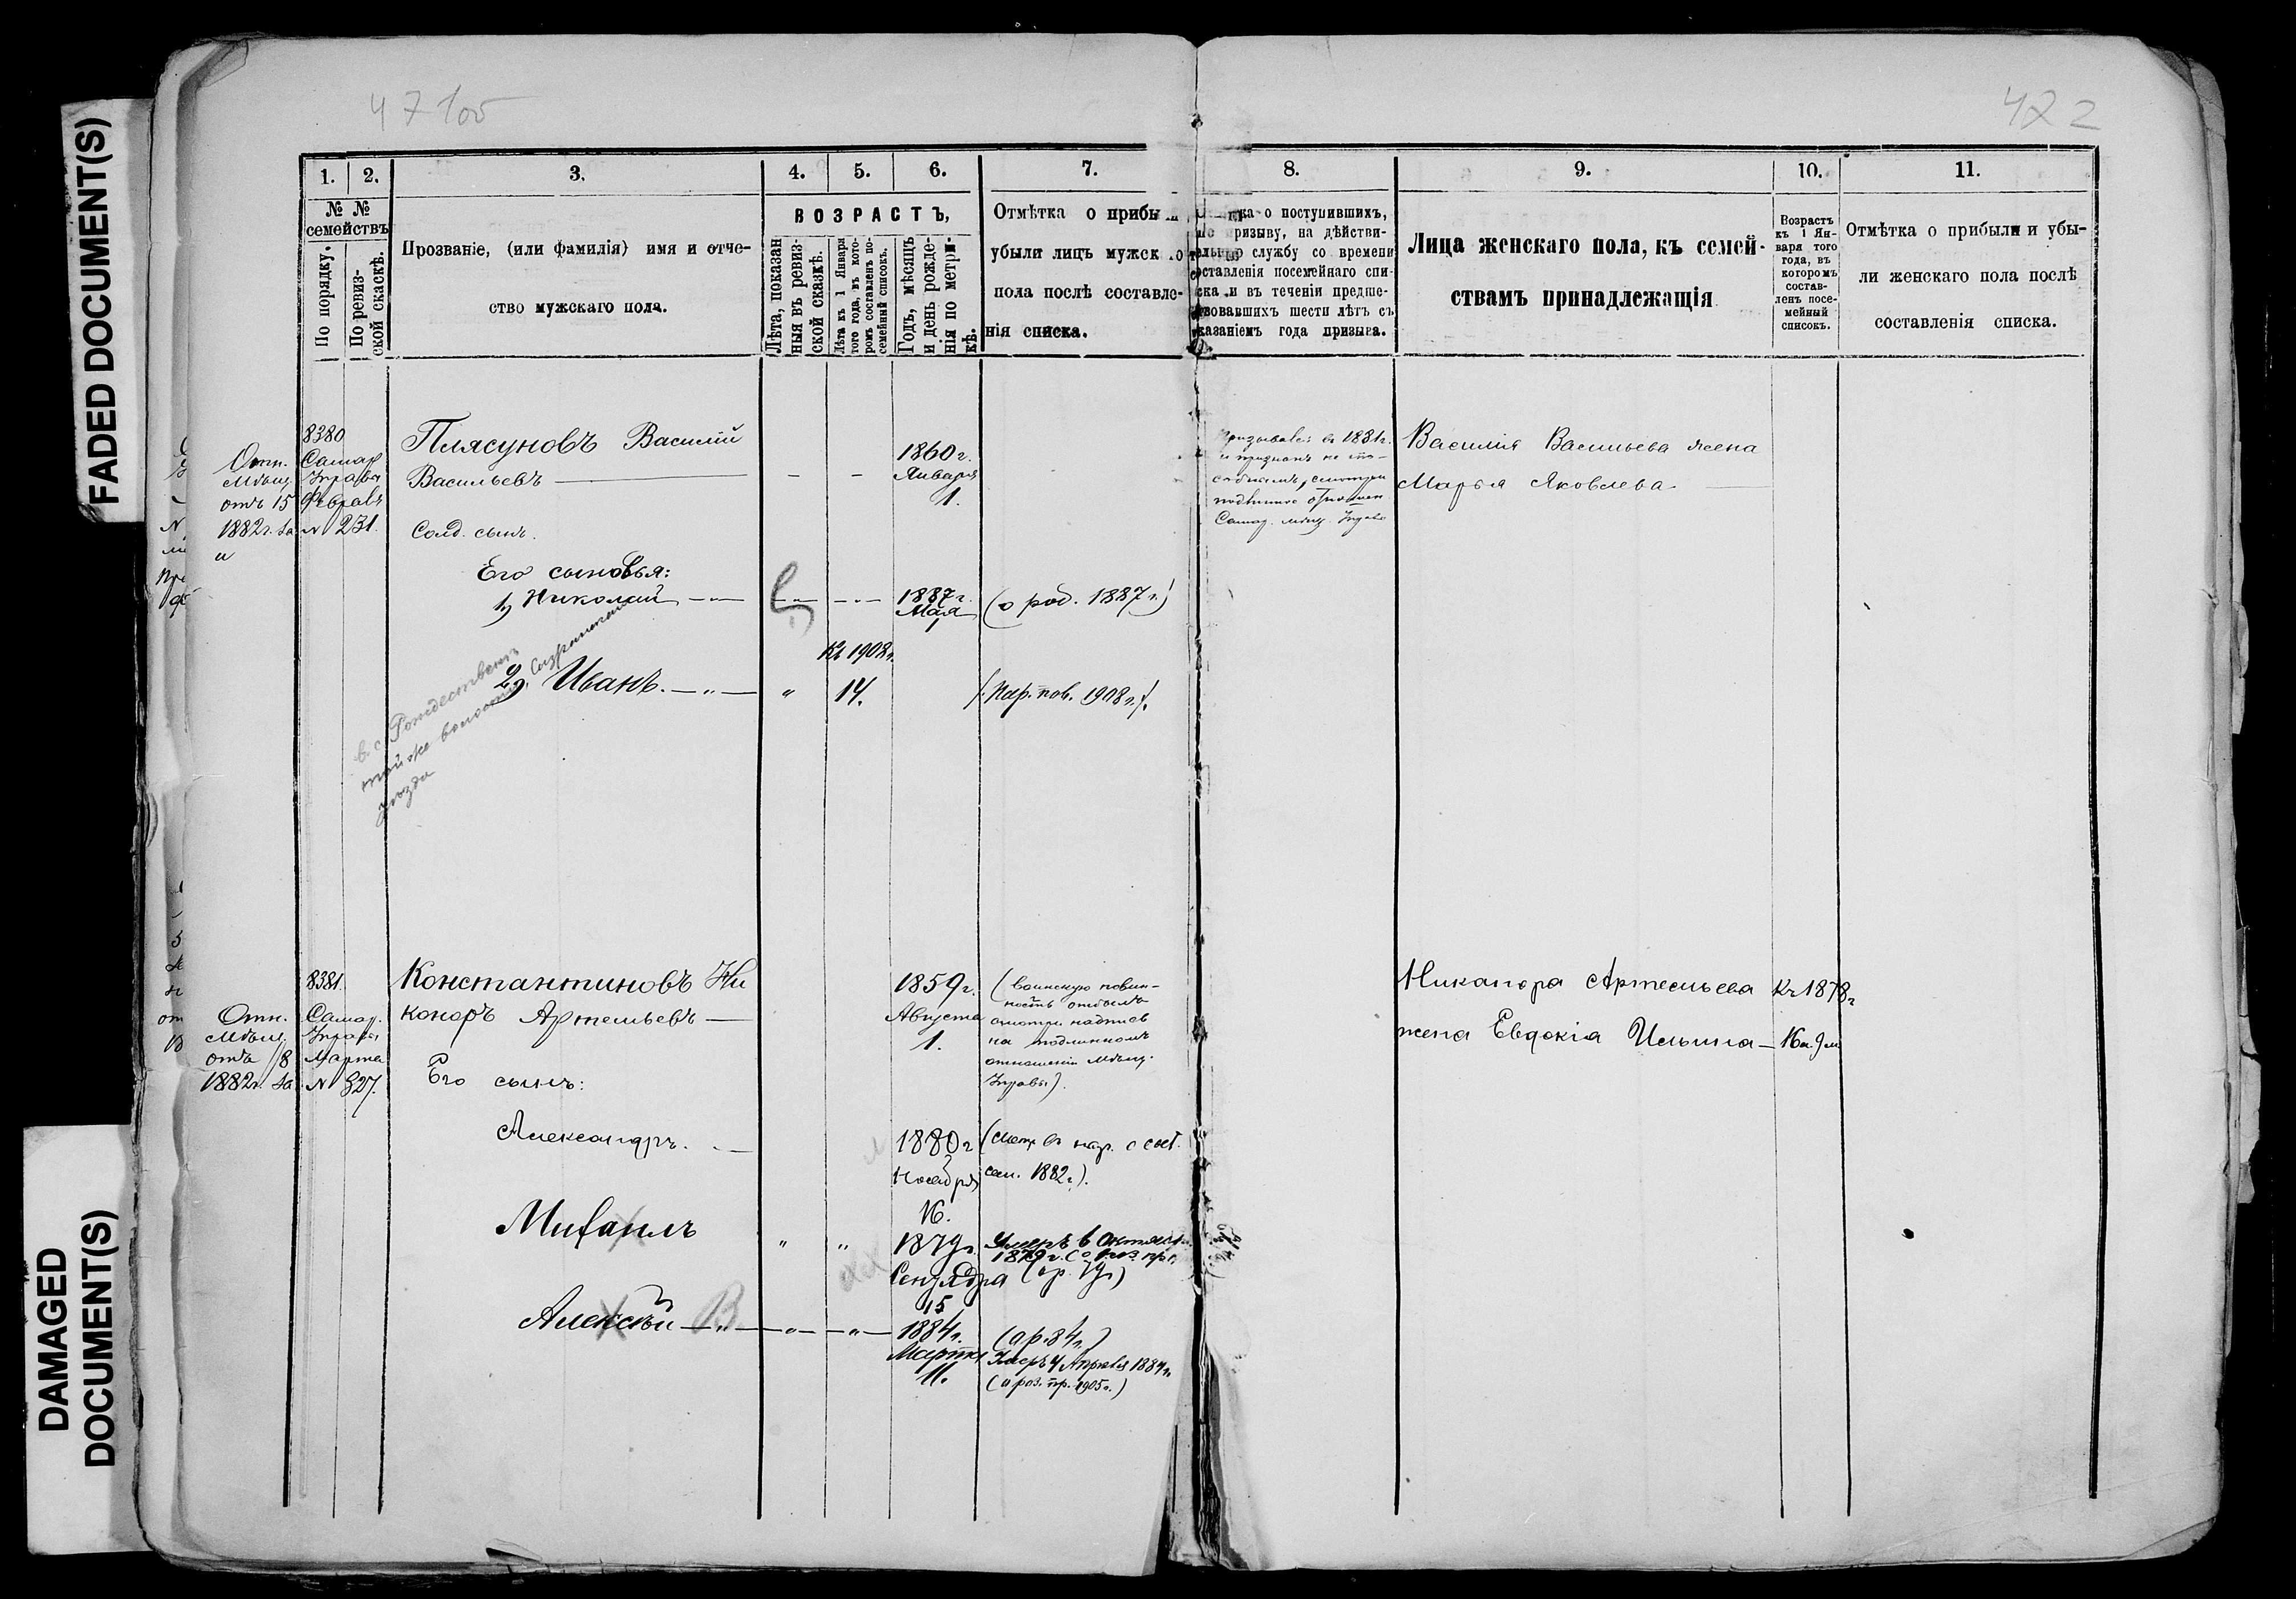 FADED DOCUMENT(S)
DAMAGED
DOCUMENT(S)
47 1об
422
1. 2. 3. 4. 5. 6. 7.
№ №
семействъ
По порядку.
По ревиз-
ской скаскѣ.
Прозваніе, (или фамилія) имя и отче-
ство мужскаго пола.
ВОЗРАСТЪ,
Лѣта, показан
ныя въ ревиз-
ской сказкѣ.
Лѣта къ 1 Января
того года, въ кото-
ромъ составленъ по-
семейный списокъ.
Годъ, мѣсяцъ
и день рожде-
нія по метри-
кѣ.
Отмѣтка о прибы
убыли лицъ мужск
пола послѣ составле-
нія списка.
8. 9. 10. 11.
ка о поступившихъ,
ризыву, на дѣйстви-
службу со времени
составленія посемейнаго спи-
ска и въ теченіи предше-
твовавшихъ шести лѣтъ съ
казаніемъ года призыва.
Лица женскаго пола, къ семей-
ствамъ принадлежащія
Возрастъ
къ 1 Ян-
варя того
года, въ
которомъ
состав-
ленъ посе-
мейный
списокъ.
Отмѣтка о прибыли и убы-
ли женскаго пола послѣ
составленія списка.
8380
Отн. Самар
Мѣщ. Управы
отъ 15 Февраля
1882г. за № 231.
и
Плясуновъ Василій
Васильевъ
Солд. сынъ.
1860г.
Января
1.
Призывался въ 1881г.
и признанъ не спо-
собнымъ, смотри
подлинное отношен.
Самар. мѣщ. Управы
Василія Васильева жена
Марья Яковлева
Его сыновья:
1) Николай
1887г.
Мая
1
(о род. 1887г.)
Къ 1908г.
2) Иванъ. — „ — „ 14. (Пар. пов. 1908г.).
в с. Рождествено
той же волости, Сызранскаго
уѣзда
8381.
Отн. Самар.
Мѣщ. Управы
отъ 18 Марта
1882г. за № 327.
Константиновъ Ни
коноръ Артемьевъ
1859г.
Августа
1.
(воинскую повин-
ность отбылъ
смотри надпись
на подлинномъ
отношеніи Мѣщ.
Управы).
Никанора Артемьева
жена Евдокія Ильина
Къ 1878г
16л. 9м
Его сынъ:
Александръ.
1880г
Ноября
16.
(смот. въ кар. о сост.
сем. 1882г.).
Михаилъ
„ „
1879г.
Сентября
15
Умеръ в Октябр.
1879г. (о роз. пр.
(ар. 79г)
Алексѣй — „ — В — „ — „ —
1884г.
Марта
11.
(а р. 84г.)
Умеръ 4 Апрѣля 1884г.
(о роз. пр. 1905г.)